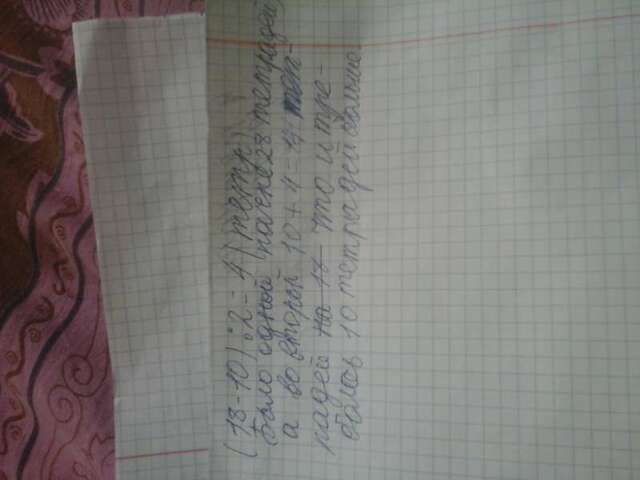 (18-10):2=4(тетр.)
было одной пачке 28 тетрадей,
а во второй 10+4=14 тет-
радей на 14 что и тре-
балось 10 тетрадей больше.